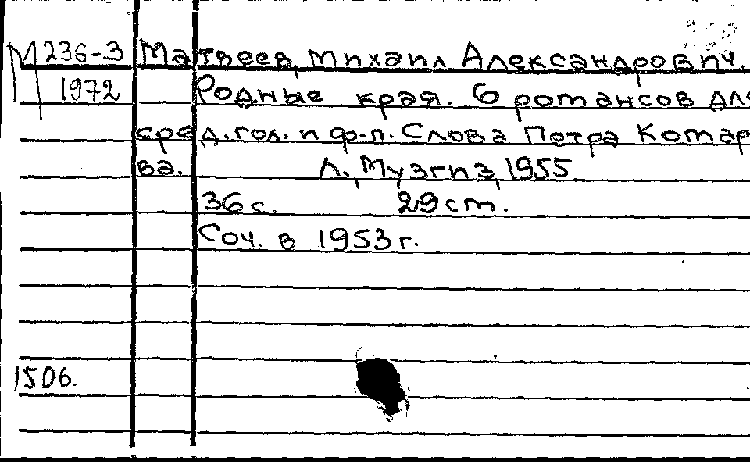 М 236-3 Матвеев, Михаил Александрович.
1972 Родные края. 6 романсов для
сред. гол. и ф-п. Слова Петра Комар
ва. Л., Музгиз, 1955
36 с. 29 cm.
Соч. в 1953 г.
1506.